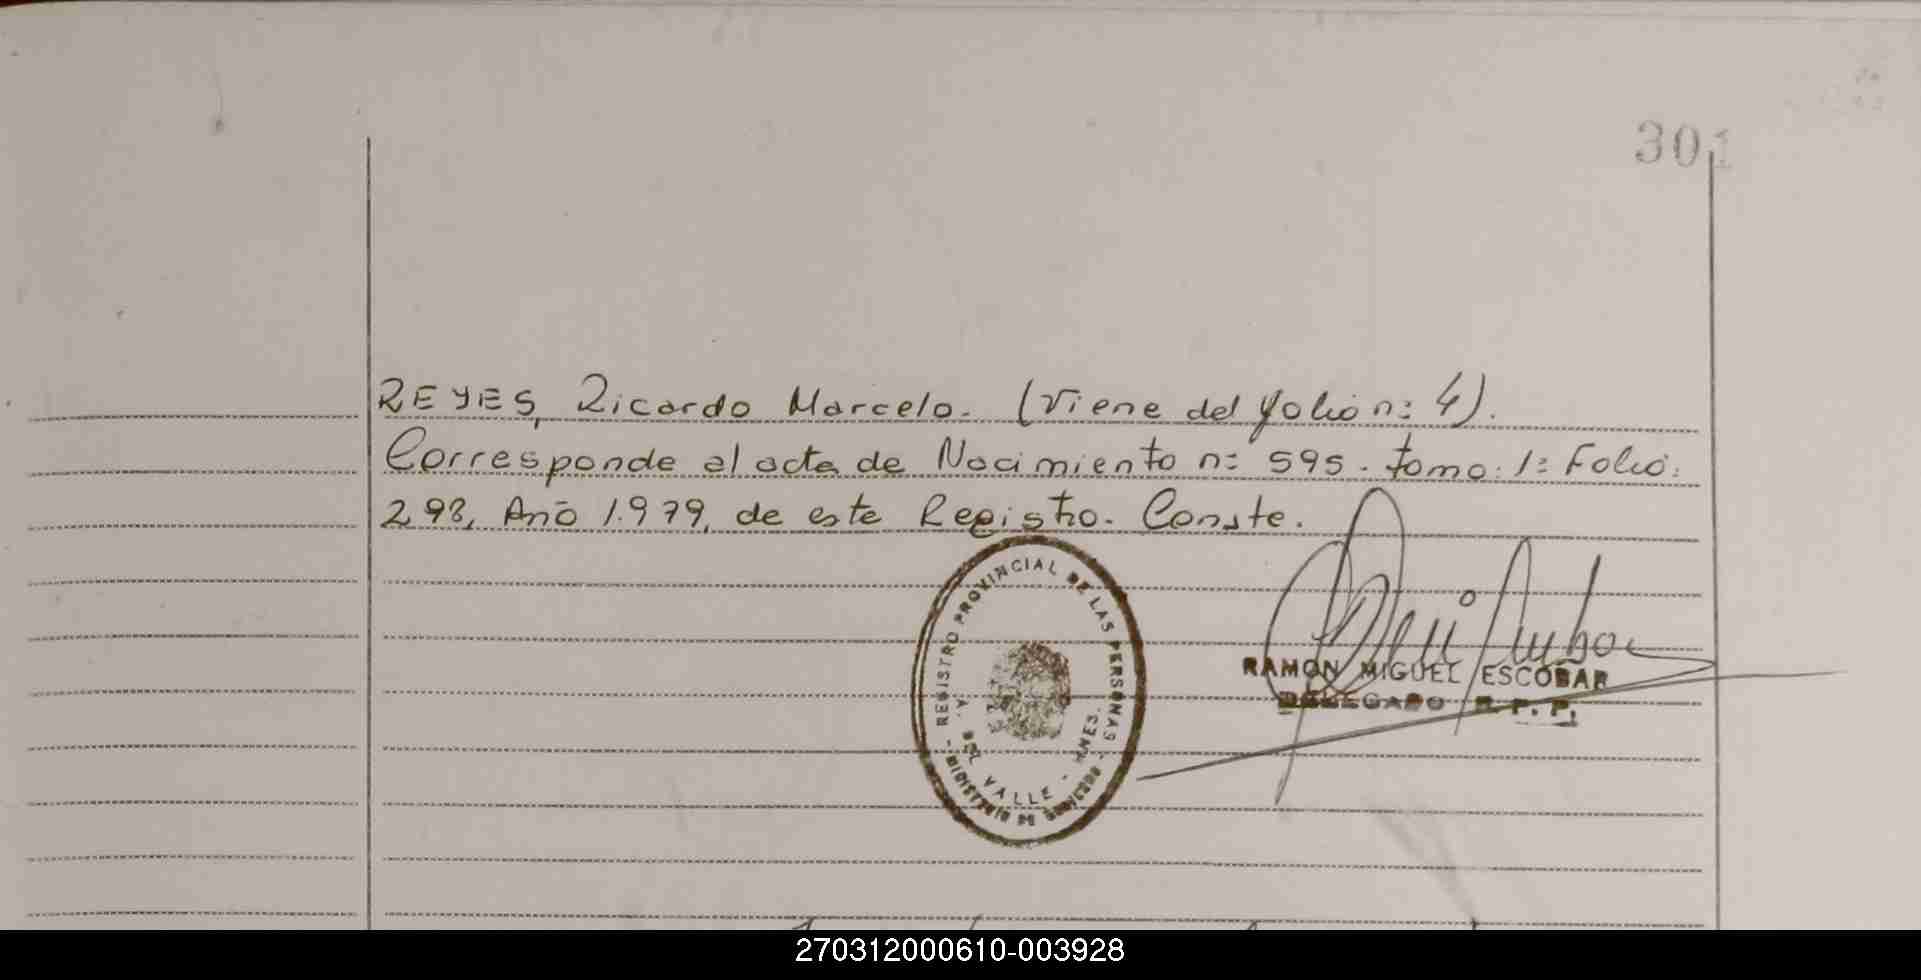 301
REYES, Ricardo Marcelo. (Viene del folio n: 4).
Corresponde al acta de Nacimiento n: 595. tomo: 1: Folio:
298, Año 1.979, de este Registro. Conste.
- REGISTRO PROVINCIAL DE LAS PERSONAS -
MINISTERIO DE GOBIERNO
DEL VALLE -
RAMON MIGUEL ESCOBAR
DELEGADO R. P. P.
270312000610-003928